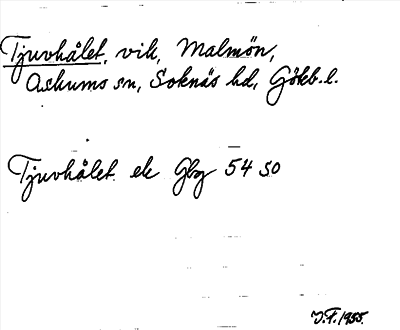 Tjuvhålet, vik, Malmön,
Askums sn, Sotenäs hd, Gökb. l.
Tjuvhålet ek Gbg 54 SO
V.F. 1955.